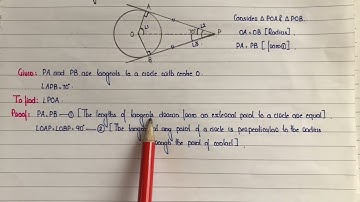 A
Consider △ POA & △ POB.
OA=OB [Radius].
O
P
PA=PB [from①]
B
Given: PA and PB are tangents to a circle with centre O.
∠APB=70°.
To find: ∠POA.
Proof: PA=PB—① [The lengths of tangents drawn from an external point to a circle are equal].
∠OAP=∠OBP=90°—② [The tangent any point of a circle is perpendicular to the radius
through the point of contact]